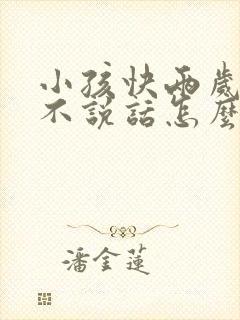 小孩快兩歲
不說話怎麼
潘金蓮